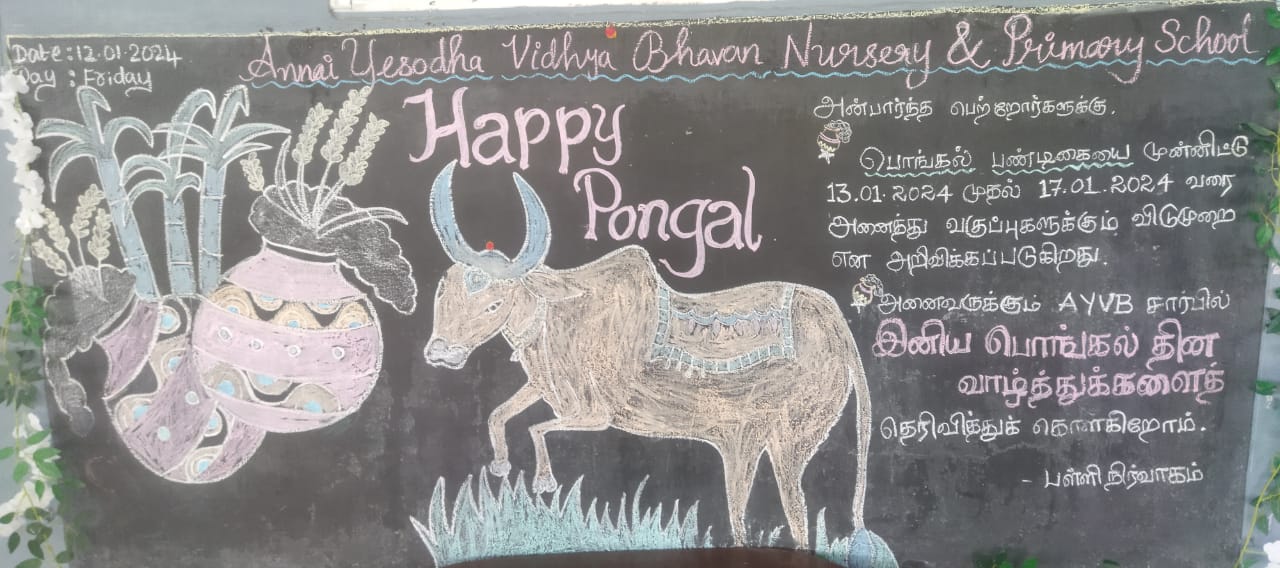 Date : 12.01.2024
Day : Friday
Annai Yesodha Vidhya Bhavan Nursery & Primary School
Happy
Pongal
அன்பார்ந்த பெற்றோர்களுக்கு.
பொங்கல் பண்டிகையை முன்னிட்டு
13.01.2024 முதல் 17.01.2024 வரை
அனைத்து வகுப்புகளுக்கும் விடுமுறை
என அறிவிக்கப்படுகிறது.
அனைவருக்கும் AYVB சார்பில்
இனிய பொங்கல் தின
வாழ்த்துக்களைத்
தெரிவித்துக் கொள்கிறோம்.
- பள்ளி நிர்வாகம்